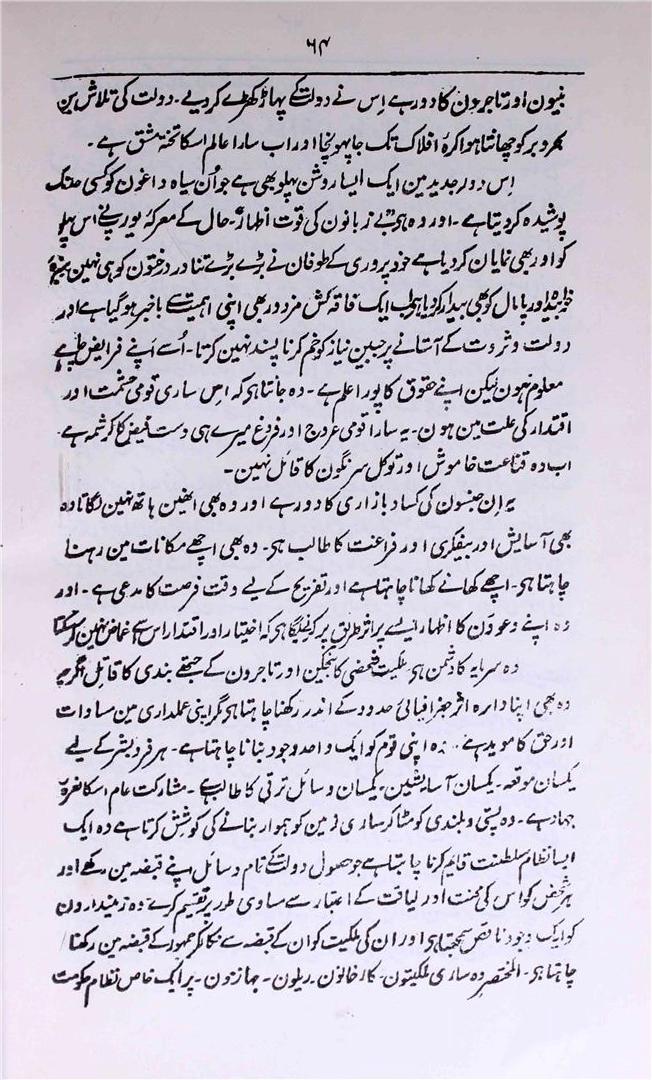 ۶۴
بنیون اور تاجرون کا دور ہے اِس نے دولت کے پہاڑ کھڑے کر دیے۔ دولت کی تلاش مین
بحر و بر کو چھانتا ہوا کرۂ افلاک تک جا پہونچا اور اب سارا عالم اسکا تختۂ مشق ہے۔
اِس دور جدید مین ایک ایسا روشن پہلو بھی ہے جو اُن سیاہ داغون کو کسی حد تک
پوشیدہ کر دیتا ہے۔ اور وہ ہی بے زبانون کی قوت اظہار۔ حال کے معرکۂ یورپ نے اس پہلو
کو اور بھی نمایان کر دیا ہے خود پروری کے طوفان نے بڑے بڑے تناور درختون کو ہی نہین
خوابیدہ اور پامال کو بھی بیدار کر دیا ہو اب ایک فاقہ کش مزدور بھی اپنی اہمیت سے باخبر ہو گیا ہے اور
دولت و ثروت کے آستانے پر جبین نیاز کو خم کرنا پسند نہین کرتا۔ اُسے اپنے فرایض چاہے
معلوم نہون لیکن اپنے حقوق کا پورا علم ہے۔ وہ جانتا ہی کہ اِس ساری قومی حشمت اور
اقتدار کی علت مین ہون۔ یہ سارا قومی عروج اور فروغ میرے ہی دست فیض کا کرشمہ ہے۔
اب وہ قناعت خاموش اور توکل سرنگون کا قائل نہین۔
یہ اِن جنسون کی کساد بازاری کا دور ہے اور وہ بھی انھین ہاتھ نہین لگاتا وہ
بھی آسایش اور بیفکری اور فراغت کا طالب ہی۔ وہ بھی اچھے مکانات مین رہنا
چاہتا ہی۔ اچھے کھانے کھانا چاہتا ہے اور تفریح کے لیے وقت فرصت کا مدعی ہے۔ اور
وہ اپنے دعوون کا اظہار ایسے پر اثر طریق پر کریگا ہی کہ اختیار اور اقتدار اس سے اغماض نہین کر سکتا
وہ سرمایہ کا دشمن ہی ملکیت شخصی کا بیخکن اور تاجرون کے جتھے بندی کا قاتل اگرچہ
وہ بھی اپنا دایرہ اثر جغرافیائی حدود کے اندر رکھنا چاہتا ہی مگر اپنی عملداری مین مساوات
اور حق کا موید ہے۔ وہ اپنی قوم کو ایک واحد وجود بنانا چاہتا ہے۔ ہر فرد بشر کے لیے
یکسان موقعہ۔ یکسان آسایشین۔ یکسان وسائل ترقی کا طالب ہے۔ مشارکت عام اسکا نعرۂ
جہاد ہے۔ وہ پستی و بلندی کو مٹا کر ساری زمین کو ہموار بنانے کی کوشش کرتا ہے وہ ایک
ایسا نظام سلطنت قایم کرنا چاہتا ہے جو حصول دولت کے تمام وسائل اپنے قبضہ مین رکھے اور
ہر شخص کو اس کی محنت اور لیاقت کے اعتبار سے مساوی طور پر تقسیم کرے وہ زمیندارون
کو ایک وجود ناقص سمجھتا ہی اور ان کی ملکیت کو ان کے قبضہ سے نکالکر جمہور کے قبضہ مین رکھنا
چاہتا ہی۔ المختصر وہ ساری ملکیتون۔ کارخانون۔ ریلون۔ جہازون۔ پر ایک خاص نظام حکومت